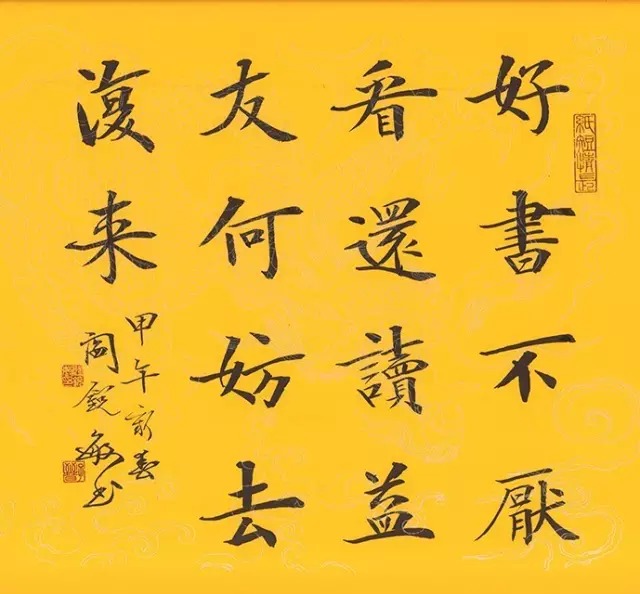 紙短情長
好書不厭
看還讀益
友何妨去
復来
甲午新春
閻銳敏书